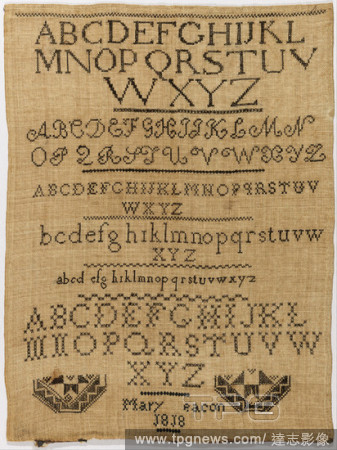 ABCDEFGHIJKL
MNOPQRSTUV
WXYZ
ABCDEFGHIJKLMN
OPQRSTUVWXYZ
ABCDEFGHIJKLMNOPQRSTUV
WXYZ
bcdefghıklmnopqrstuvw
XYZ
abcd efghıklmnopqrstuvwxyz
ABCDEFGHIJKL
MNOPQRSTUVW
XYZ
Mary eacon
1818
www.tpgnews.com/ 達志影像